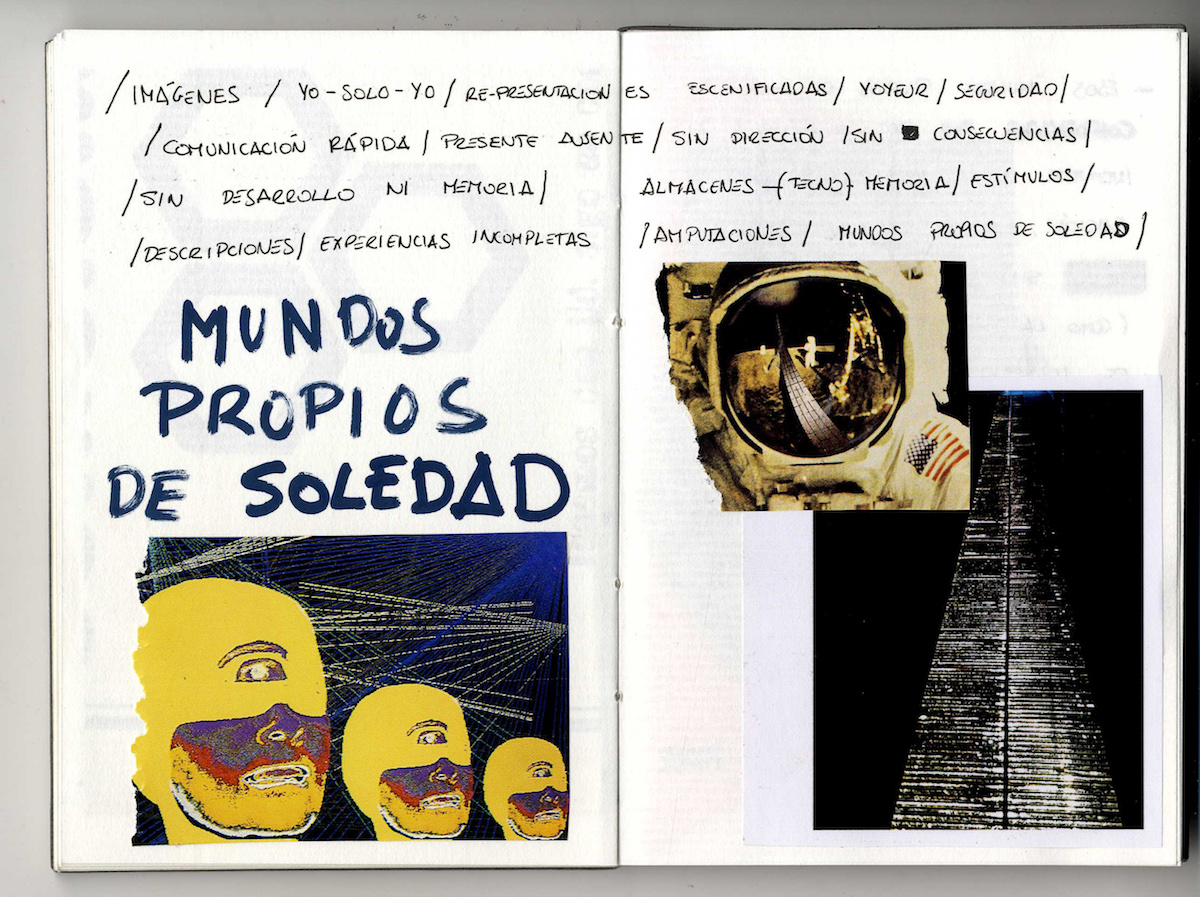 /IMÁGENES / YO-SOLO-YO / RE-PRESENTACIONES ESCENIFICADAS/ VOYEUR / SEGURIDAD/
/COMUNICACIÓN RÁPIDA / PRESENTE AUSENTE / SIN DIRECCIÓN /SIN CONSECUENCIAS/
/SIN DESARROLLO NI MEMORIA/ ALMACENES-(TECNO) MEMORIA/ ESTÍMULOS/
/DESCRIPCIONES/ EXPERIENCIAS INCOMPLETAS /AMPUTACIONES/ MUNDOS PROPIOS DE SOLEDAD/
MUNDOS
PROPIOS
DE SOLEDAD